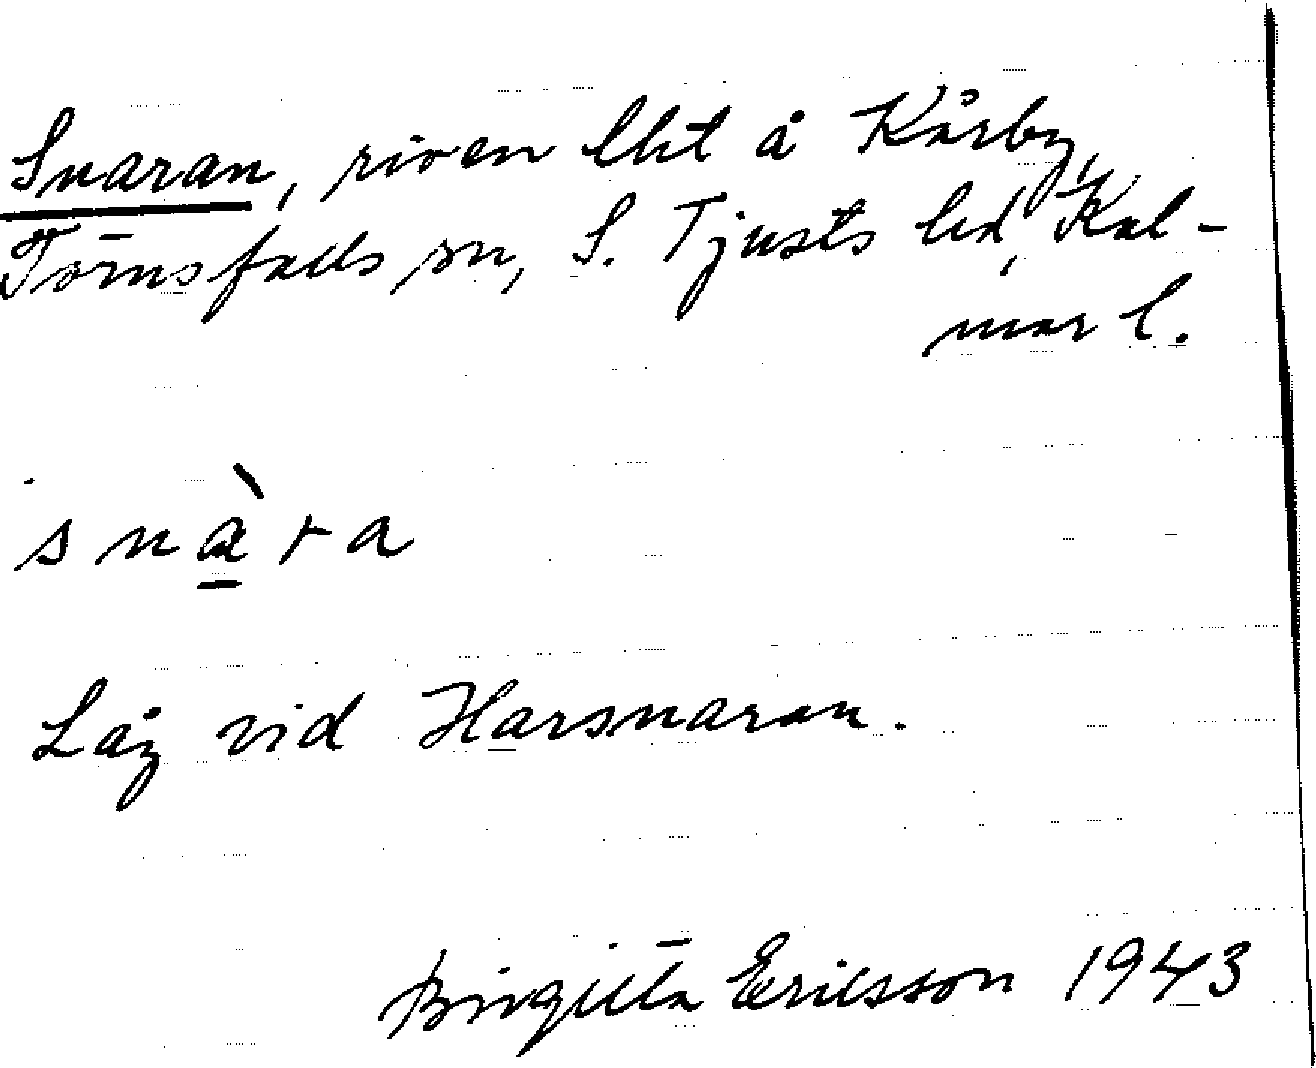 Snaran, riven lht å Kårby,
Törnsfalls sn, S. Tjusts hd, Kal-
mar l.
snàra
Låg vid Harsnaran.
Birgitta Ericsson 1943